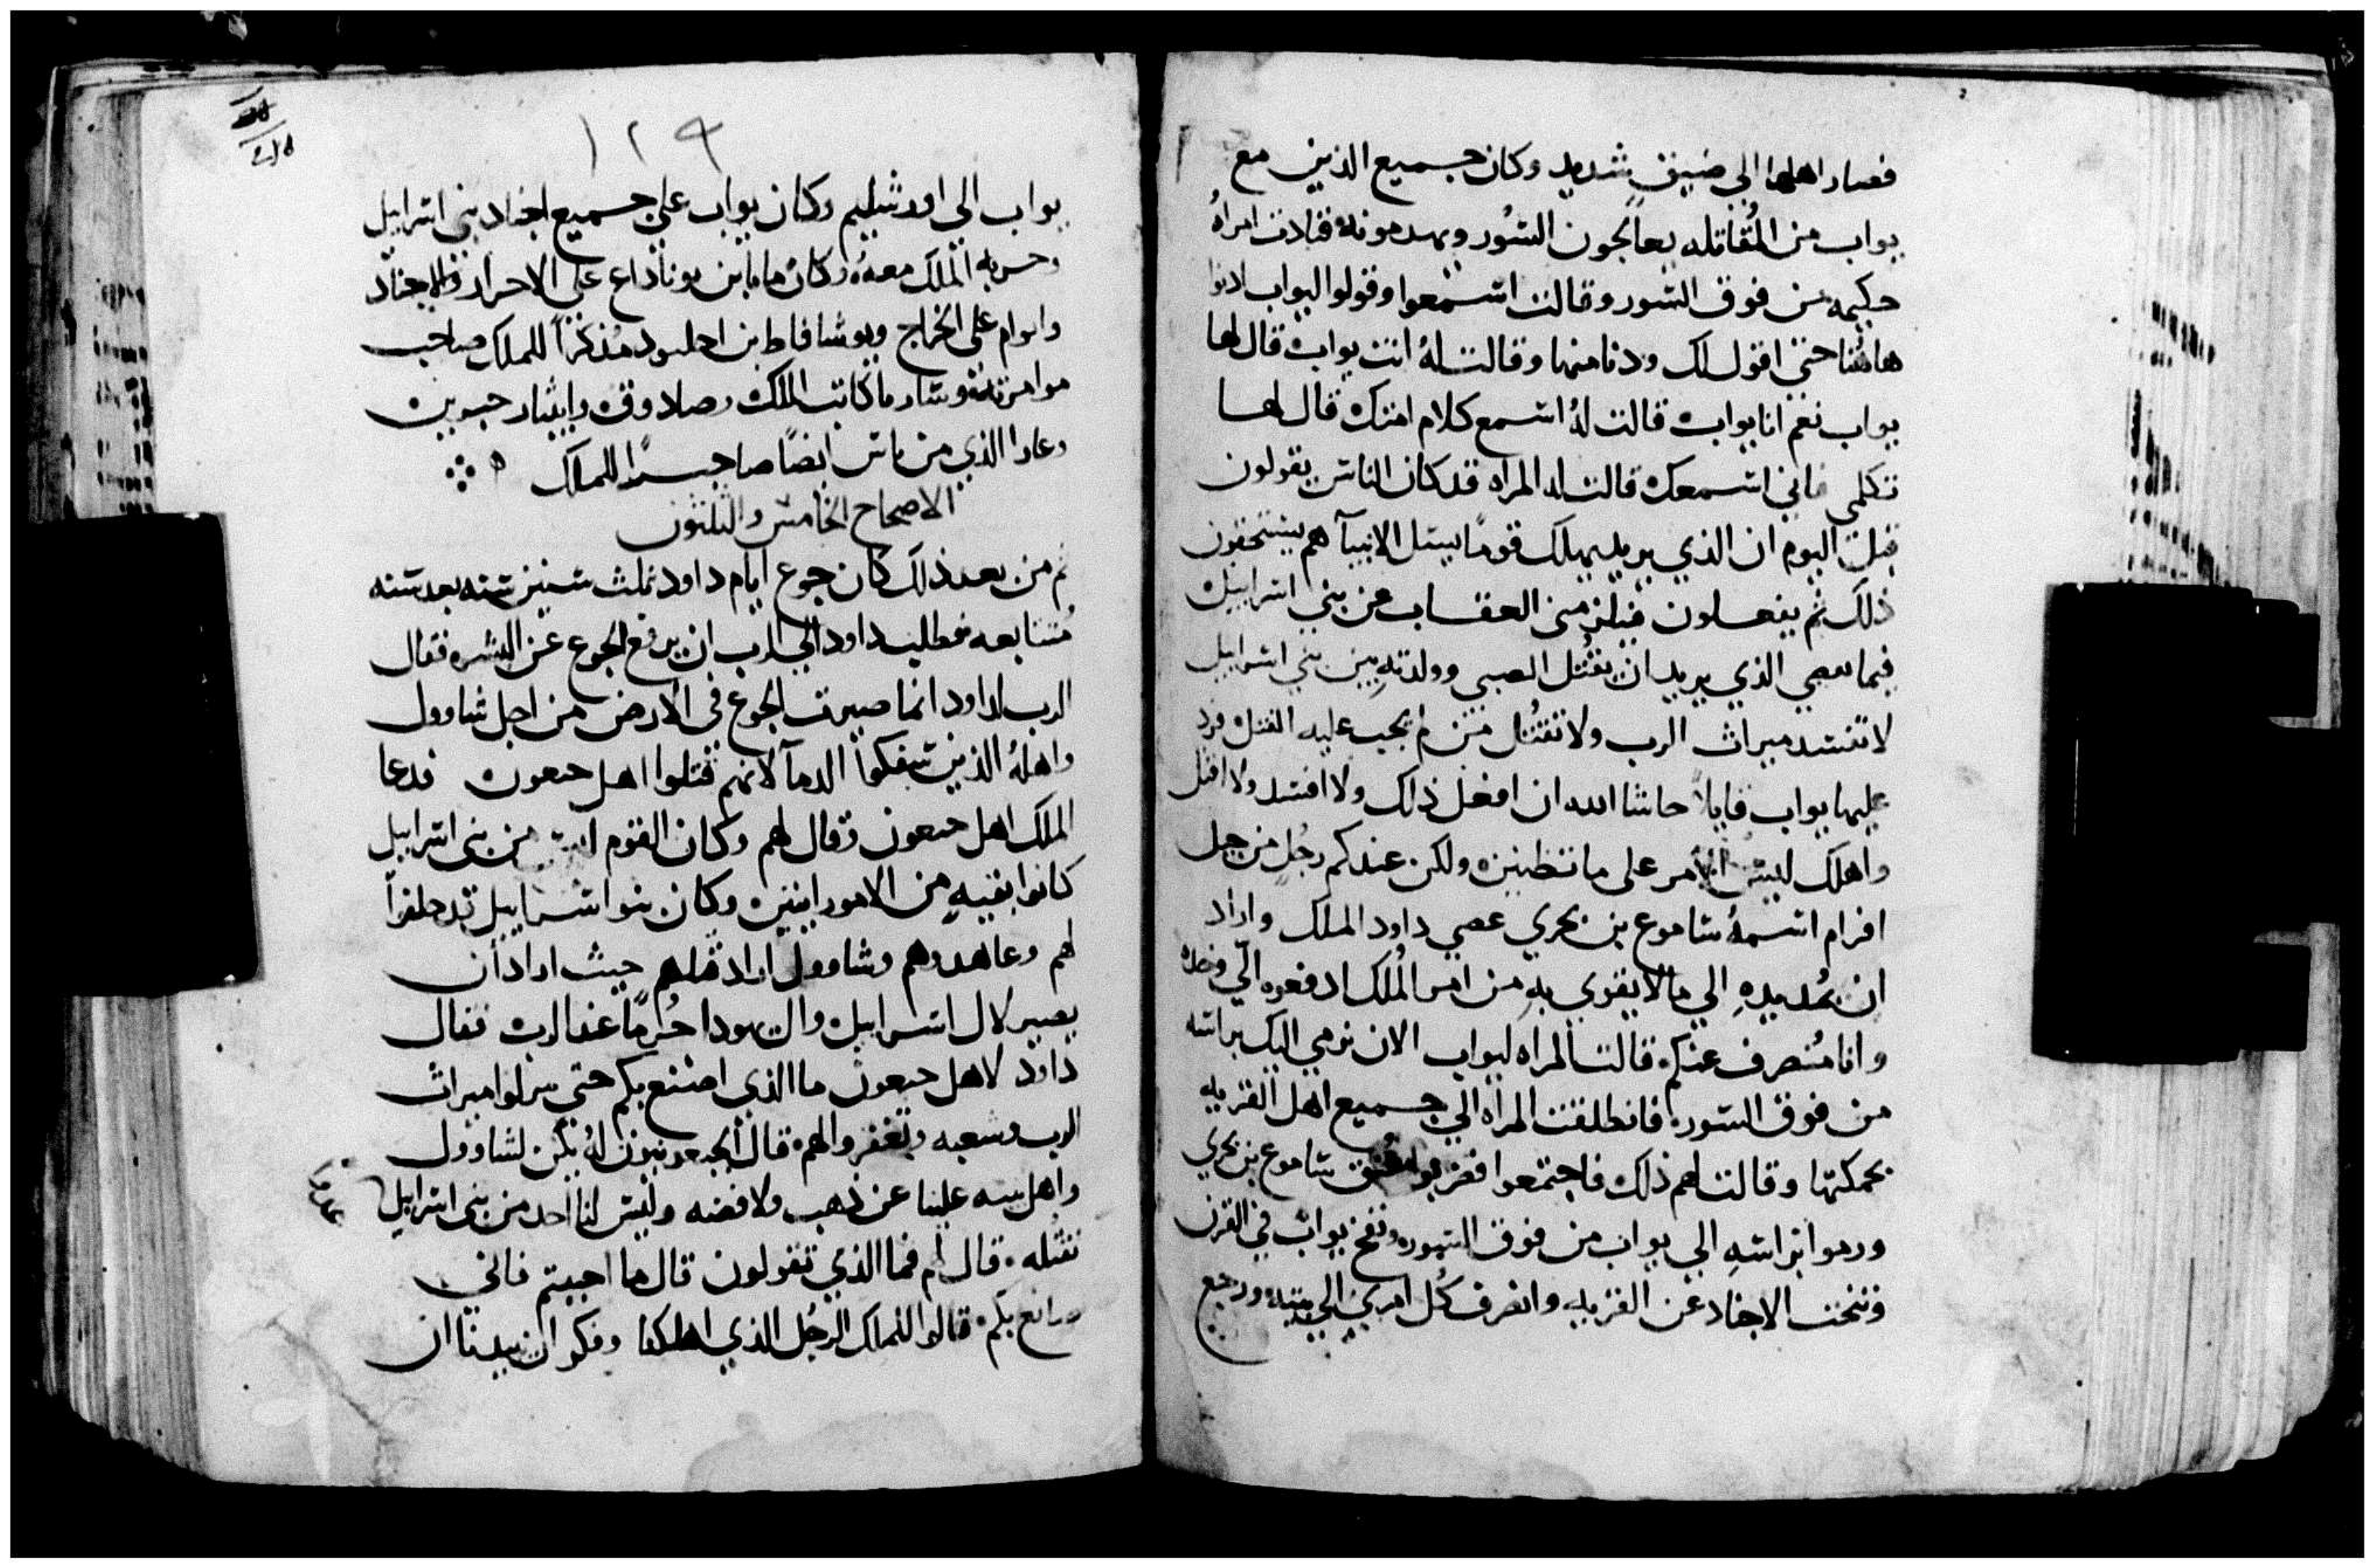 فصار اهلها الي ضيق شديد وكان جميع الذين مع
يواب من المُقاتله يعالجون السُور ويهدمونه فنادت امراهُ
حكيمه من فوق السور وقالت استمعوا وقولوا ليواب ادنوا
هاهُنا حتي اقول لك ودنا منها وقالت لهُ انت يواب قال لها
يواب نعم انا يواب قالت لهُ استمع كلام امتك قال لها
تكلمي فاني استمعك قالت له المراه قد كان الناس يقولون
قبل اليوم ان الذي يريد يهلك قومًا يسئل الانبيآ هم يستحقون
ذلك ثم يفعلون فيلزمني العقاب من بني اسراييل
فيما معصي الذي يريد ان يقتُل الصبي وولدتهِ بين بني اسراييل
لا تفسد ميراث الرب ولا تقتُل من لم يجب عليه القتل فرد
عليها يواب قايلاً حاشا الله ان افعل ذلك ولا افسد ولا اقتل
واهلك ليس الامر علي ما تظنين ولكن عندكم رجُل من جبل
افرام اسمهُ ساموع بن بحري عصي داود الملك واراد
ان يمُد يدهِ الي ما لا يقوي بهِ من امر المُلك ادفعوه اليّ وحده
وانا مُنصرف عنكم قالت المراه ليواب الان نرمي اليك براسه
من فوق السور فانطلقت المراه الي جميع اهل القريه
بحكمتها وقالت لهم ذلك فاجتمعوا فضربوا عُنق ساموع بن بحري
ورموا براسهِ الي يواب من فوق السور ونفخ يواب في القرن
فتنحت الاجناد عن القريه وانصرف كُل امري الي بيته ورجع
١٢٩
يواب الي اورشليم وكان يواب علي جميع اجناد بني اسراييل
وحربه الملك معهُ وكان مابا بن يوناداع علي الاحرار والاجناد
وادوام علي الخراج ويوشافاط بن احليود مُذكراً للملك صاحب
موامرته وشارما كاتب الملك وصادوق وايثار حبرين
وعادا الذي من ياس ايضًا صاحب سرًا للملك
الاصحاح الخامس والثلثون
ثم من بعد ذلك كان جوع ايام داود ثلث سنين سنه بعد سنه
مُتتابعه فطلب داود الي الرب ان يرفع الجوع عن البشر فقال
الرب لداود انما صيرت الجوع في الارض من اجل شاوول
واهلهُ الذين سفكوا الدمآ لانهم قتلوا اهل جبعون فدعا
الملك اهل جبعون وقال لهم وكان القوم ليس من بني اسراييل
كانوا بقيه من الامورانيين وكان بنو اسراييل قد حلفوا
لهم وعاهدوهم وشاوول اراد قتلهم حيث اراد ان
يصير لال اسراييل وال يهودا حُرمًا عند الرب فقال
داود لاهل جبعون ما الذي اصنع بكم حتي ميراث
الرب وشعبه وتغفروا لهم قال الجبعونيون لهُ يكن لشاوول
واهل بيته علينا عن ذهب ولا فضه وليس لنا احد من بني اسراييل
نقتُله قال لهم فما الذي تقولون قال ما احببتم فاني
صانع بكم قالوا للملك الرجُل الذي اهلكنا وفكر ان يبيدنا ان